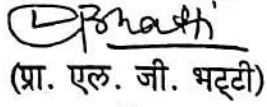 (प्रा. एल. जी. भट्टी)